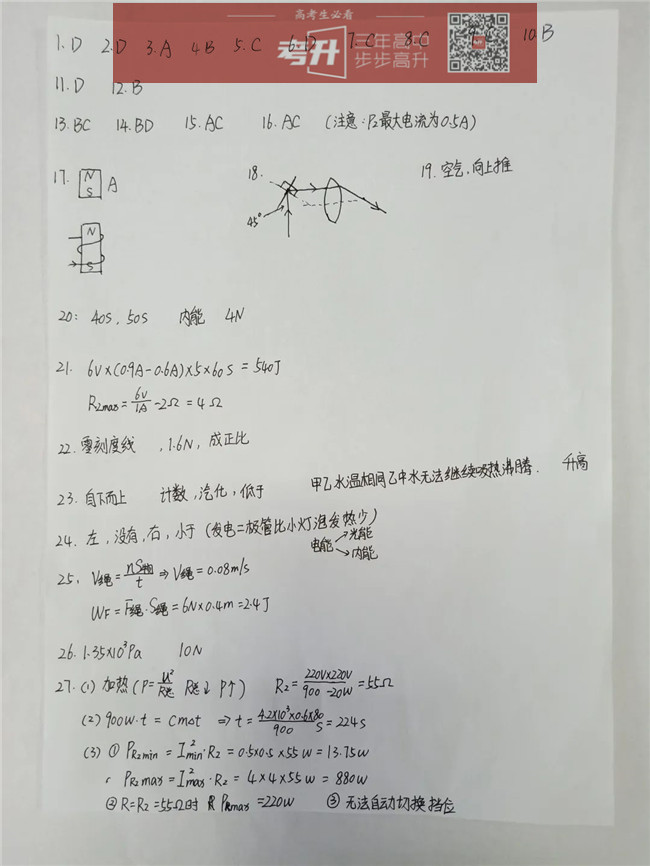 高考生必看
考升 三年高中
步步高升
1.D 2.D 3.A 4B 5.C 6.D 7.C 8.C 9.C 10.B
11.D 12.B
13.BC 14.BD 15.AC 16.AC (注意:P₂最大电流为0.5A)
17. N S A
N S
18. 45°
19.空气,向上推
20: 40S,50S 内能 4N
21. 6V×(0.9A-0.6A)×5×60S=540J
R₂max=6V/1A-2Ω=4Ω
22.零刻度线 ,1.6N,成正比
23.自下而上 计数,汽化,低于 甲乙水温相同乙中水无法继续吸热沸腾. 升高
24.左,没有,右,小于(发电二极管比小灯泡发热少)
电能→光能
→内能
25. V绳=nS物/t⇒V绳=0.08m/s
WF=F绳·S绳=6N×0.4m=2.4J
26. 1.35×10³Pa 10N
27.(1)加热(P=U²/R总 R总↓ P↑) R₂=220V×220V/900-20W=55Ω
(2)900W·t=cmΔt ⇒t=4.2×10³×0.6×80/900 S=224s
(3)①PR₂min=I²min·R₂=0.5×0.5×55W=13.75W
PR₂max=I²max·R₂=4×4×55W=880W
②R=R₂=55Ω时 PRmax=220W ③无法自动切换挡位